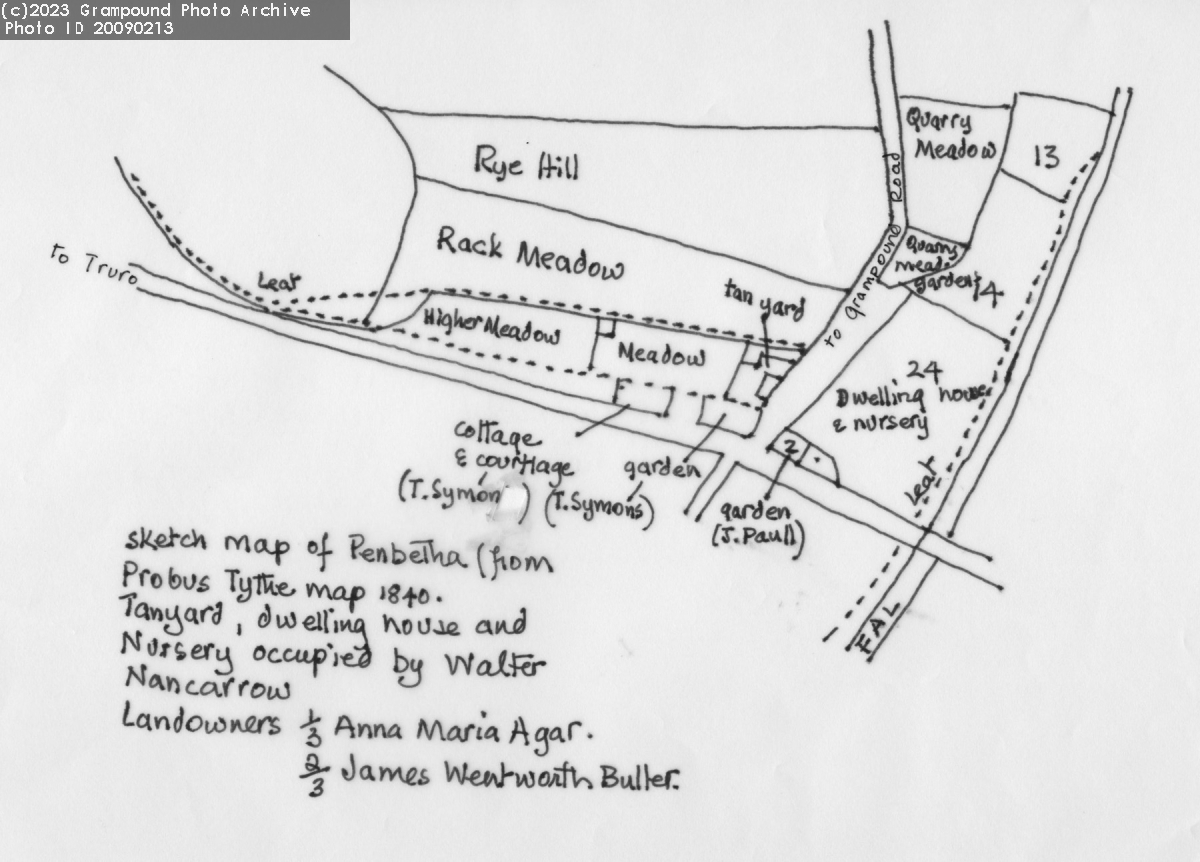 (c)2023 Grampound Photo Archive
Photo ID 20090213
Quarry
Meadow
13
Rye Hill
Road
Rack Meadow
Quarry
mead.
garden
14
to Truro
Leat
tan yard
to Grampound
Higher Meadow
Meadow
24
Dwelling house
& nursery
cottage
& courtlage
(T. Symon )
garden
(T. Symons)
2
garden
(J. Paull)
Leat
FAL
sketch map of Penbetha (from
Probus Tythe map 1840.
Tanyard, dwelling house and
Nursery occupied by Walter
Nancarrow
Landowners 1/3 Anna Maria Agar.
2/3 James Wentworth Buller.